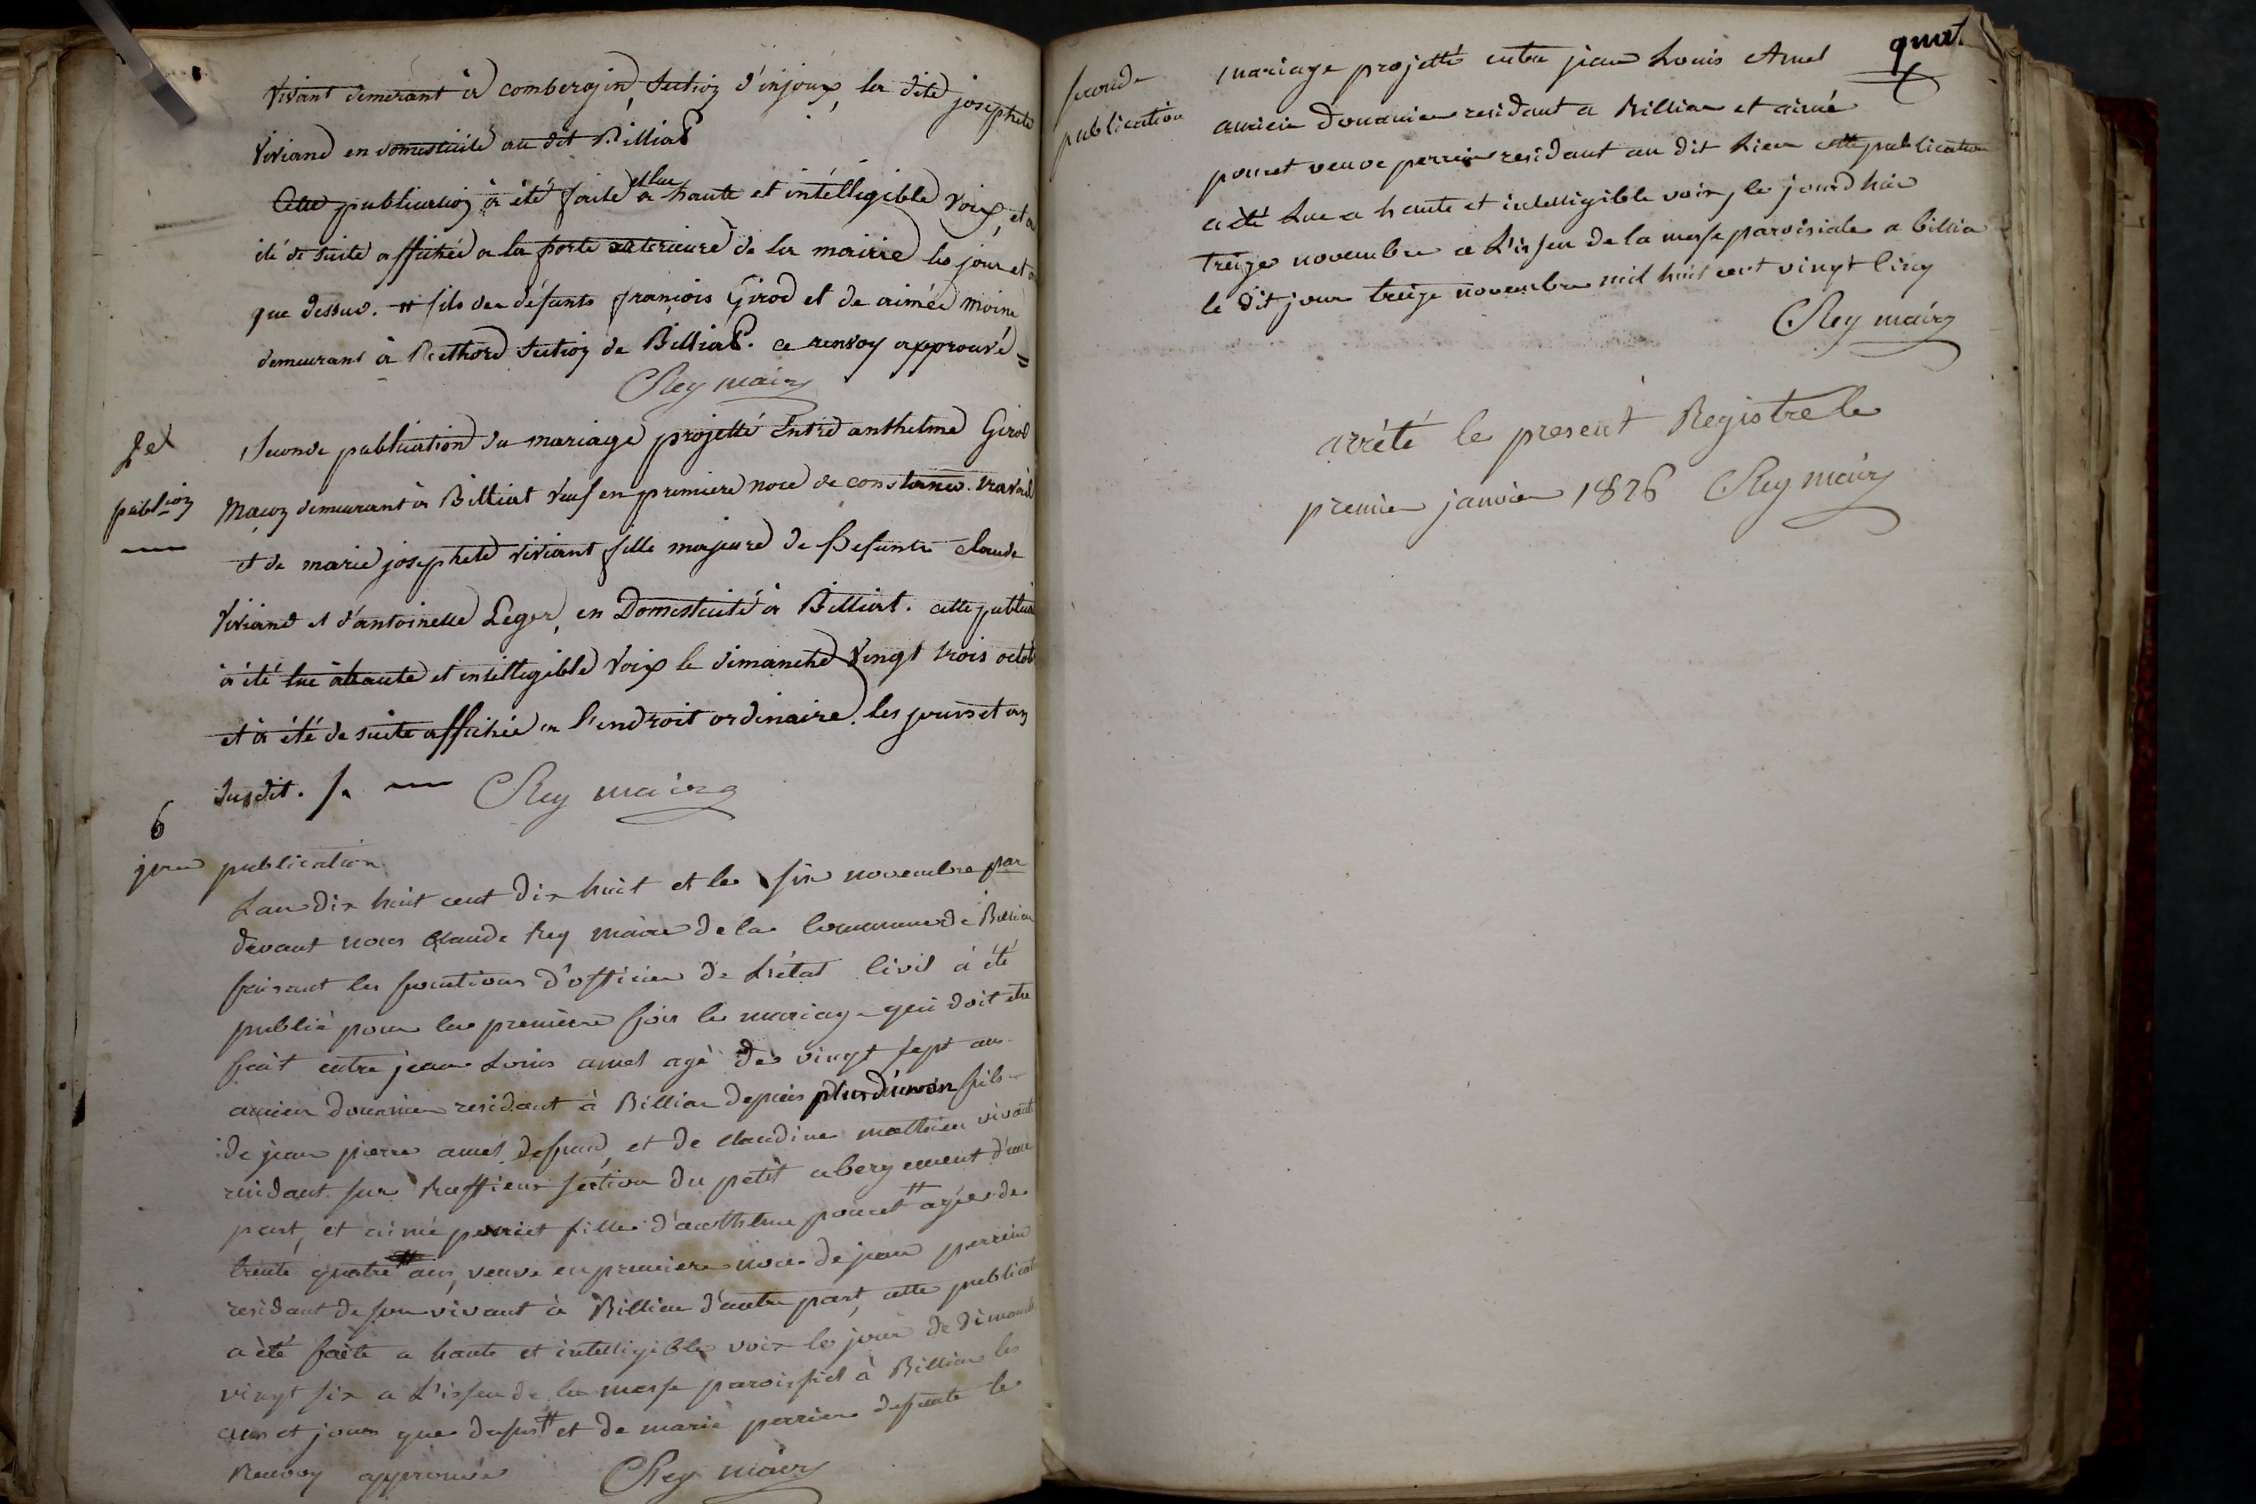 vivant demeurant à combergin, Section d'injoux, la dite josephete
Viviand en domesticité au dit Billiat
Cette publication à été faite et lue à haute et intélligible Voix, et a
été de suite affichée a la porte exterieure de la mairie les jour et
que dessus. # fils des défunts françois Girod et de aimée Moine
demeurant à Section de Billiat. ce renvoy approuvé =
CRey maire
2e
publion
Seconde publication du mariage projetté Entre anthelme Girod
Maçon demeurant à Billiat Veuf en premiere noce de constance
et de marie josephete viviant fille majeure de Defunts claude
Viviand et d'antoinette Leger, en Domesticité à Billiat. cette publica
à été lue à haute et intelligible Voix le dimanche Vingt trois octob
et à été de suite affichée a l'endroit ordinaire. les jours et an
susdit. CRey maire
6
1ere publication
Lan dix huit cent dix huit et le six novembre par
devant nous Claude Rey maire de la Commune de Billia
faisant les fonctions d'officier de L'état Civil à été
publié pour la première fois le mariage qui doit etre
fait entre jean Louis amel agé de vingt sept ans
ancien douanier residant à Billia depuis plus d'un an fils
de jean pierre amel defund, et de claudine mathieu vivante
residant sur Ruffieux section du petit abergement d'une
part, et aimé poncet fille d'anthelme poncet # agée de
trente quatre ans, veuve en premiere noce de jean perrin
residant de son vivant à Billia d'autre part, cette publicat
a été faite a haute et intelligible voix le jour de dimanch
vingt six a L'issue de la messe paroissiel à Billia les
ans et jours que desus # et de marie perrin defunte le
Renvoy approuvée CRey maire
quat.
Seconde
publication
mariage projetté entre jean Louis Amel
ancien douanier residant a Billia et aimé
poncet veuve perrin residant au dit Lieu cette publication
a été Lue a haute et intelligible voix, le jourdhui
treize novembre a L'issue de la messe paroisiale a billia
le dit jour treize novembre mil huit cent vingt Cinq
CRey maire
arrêté le present Registre le
premier janvier 1826 CRey maire